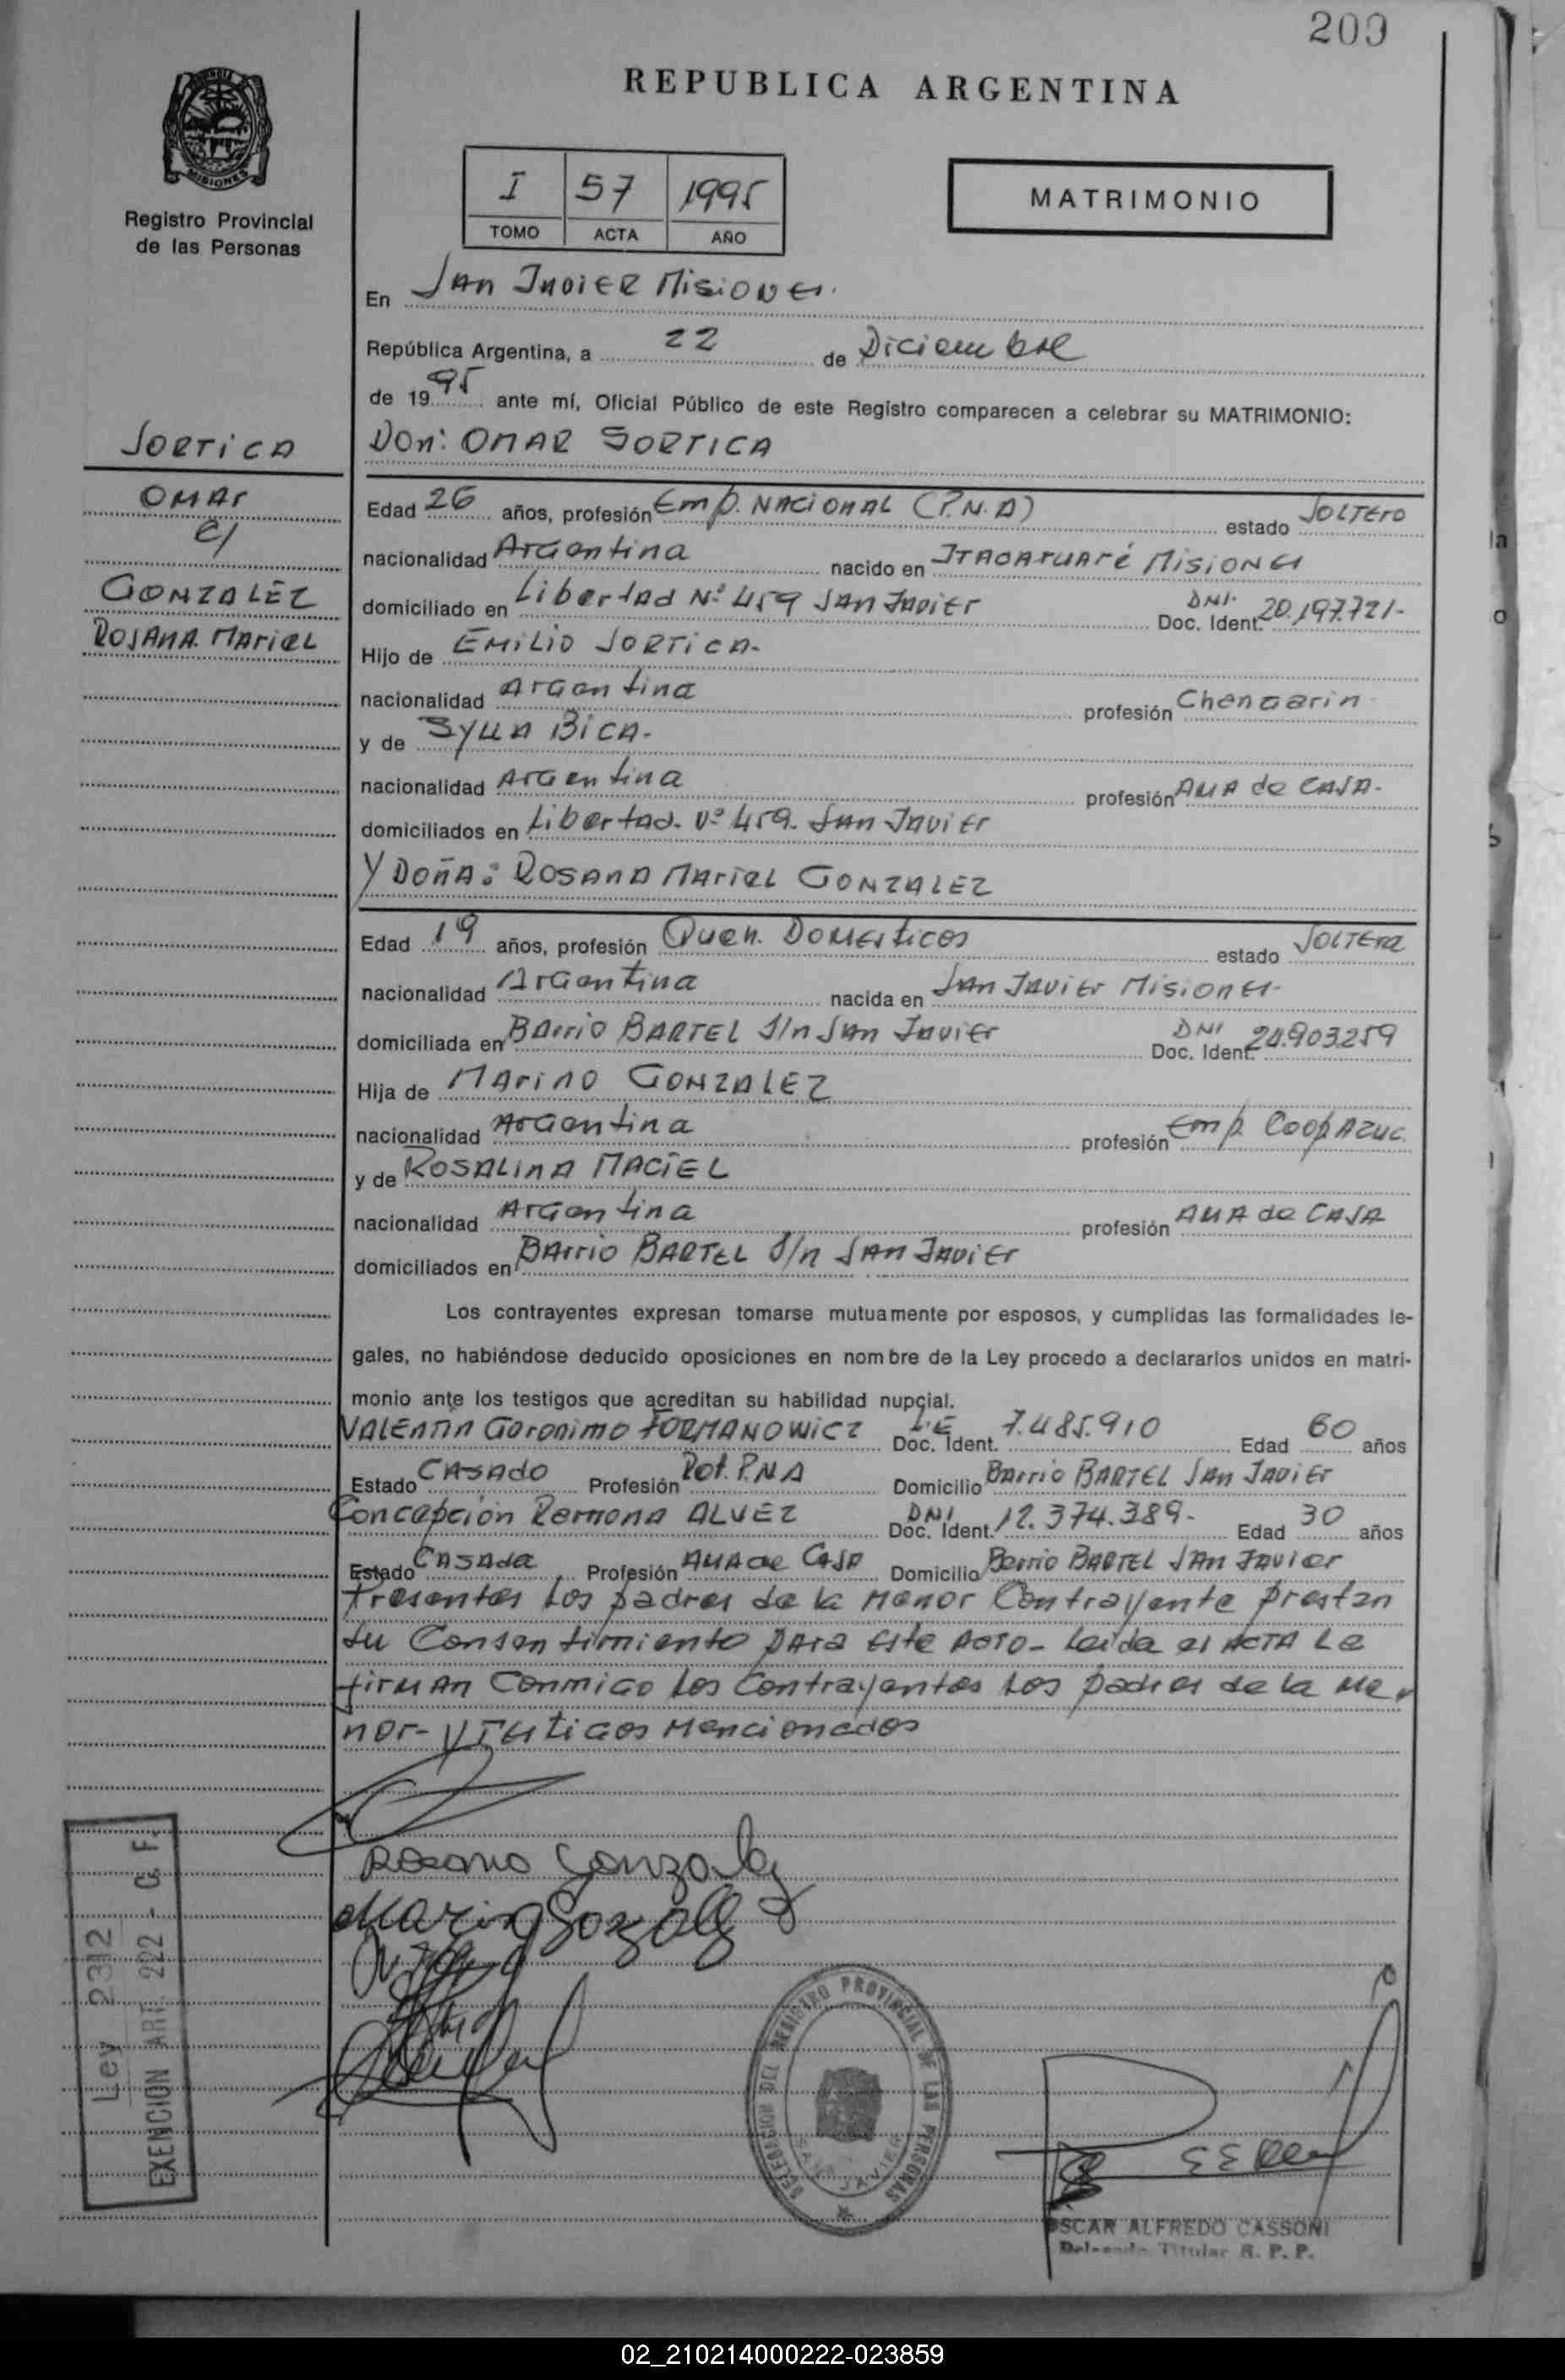 209
REPUBLICA ARGENTINA
MISIONES
Registro Provincial
de las Personas
I 57 1995
TOMO ACTA AÑO
MATRIMONIO
En San Javier Misiones.
República Argentina, a 22 de Diciembre
de 1995 ante mí, Oficial Público de este Registro comparecen a celebrar su MATRIMONIO:
Sortica
Don: OMAR SORTICA
Omar
c/
GONZALEZ
Rosana Mariel
Edad 26 años, profesión Emp. Nacional (P.N.A) estado Soltero
nacionalidad Argentina nacido en Itacaruaré Misiones
domiciliado en Libertad Nº 459 San Javier DNI. Doc. Ident. 20.197.721-
Hijo de Emilio Sortica-
nacionalidad Argentina profesión
y de Bica-
nacionalidad Argentina profesión Ama de Casa-
domiciliados en Libertad. Nº 459. San Javier
Y Doña: Rosana Mariel GONZALEZ
Edad 19 años, profesión Queh. Domesticos estado Soltera
nacionalidad Argentina nacida en San Javier Misiones-
domiciliada en Barrio BARTEL S/n San Javier DNI Doc. Ident. 24.903.259
Hija de Marino GONZALEZ
nacionalidad Argentina profesión Emp. Coop Azuc.
y de Rosalina Maciel
nacionalidad Argentina profesión Ama de Casa
domiciliados en Barrio BARTEL S/n San Javier
Los contrayentes expresan tomarse mutuamente por esposos, y cumplidas las formalidades le-
gales, no habiéndose deducido oposiciones en nombre de la Ley procedo a declararlos unidos en matri-
monio ante los testigos que acreditan su habilidad nupcial.
Valentin Geronimo FORMANOWICZ L.E Doc. Ident. 7.485.910 Edad 60 años
Estado Casado Profesión Ret. P.N.A Domicilio Barrio BARTEL San Javier
Concepción Ramona ALVEZ DNI Doc. Ident. 12.374.389- Edad 30 años
Estado Casada Profesión Ama de Casa Domicilio Barrio BARTEL San Javier
Presentes los padres de la Menor Contrayente prestan
su Consentimiento para este Acto- Leida el Acta La
firman Conmigo los Contrayentes los padres de la Me-
nor- y Testigos Mencionados
Rosana Gonzalez
Marino Gozalez
Ley 2312
EXENCION ART. 222 - C. F.
DELEGACION DEL REGISTRO PROVINCIAL DE LAS PERSONAS
SAN JAVIER
OSCAR ALFREDO CASSONI
Delegado Titular R. P. P.
02_210214000222-023859